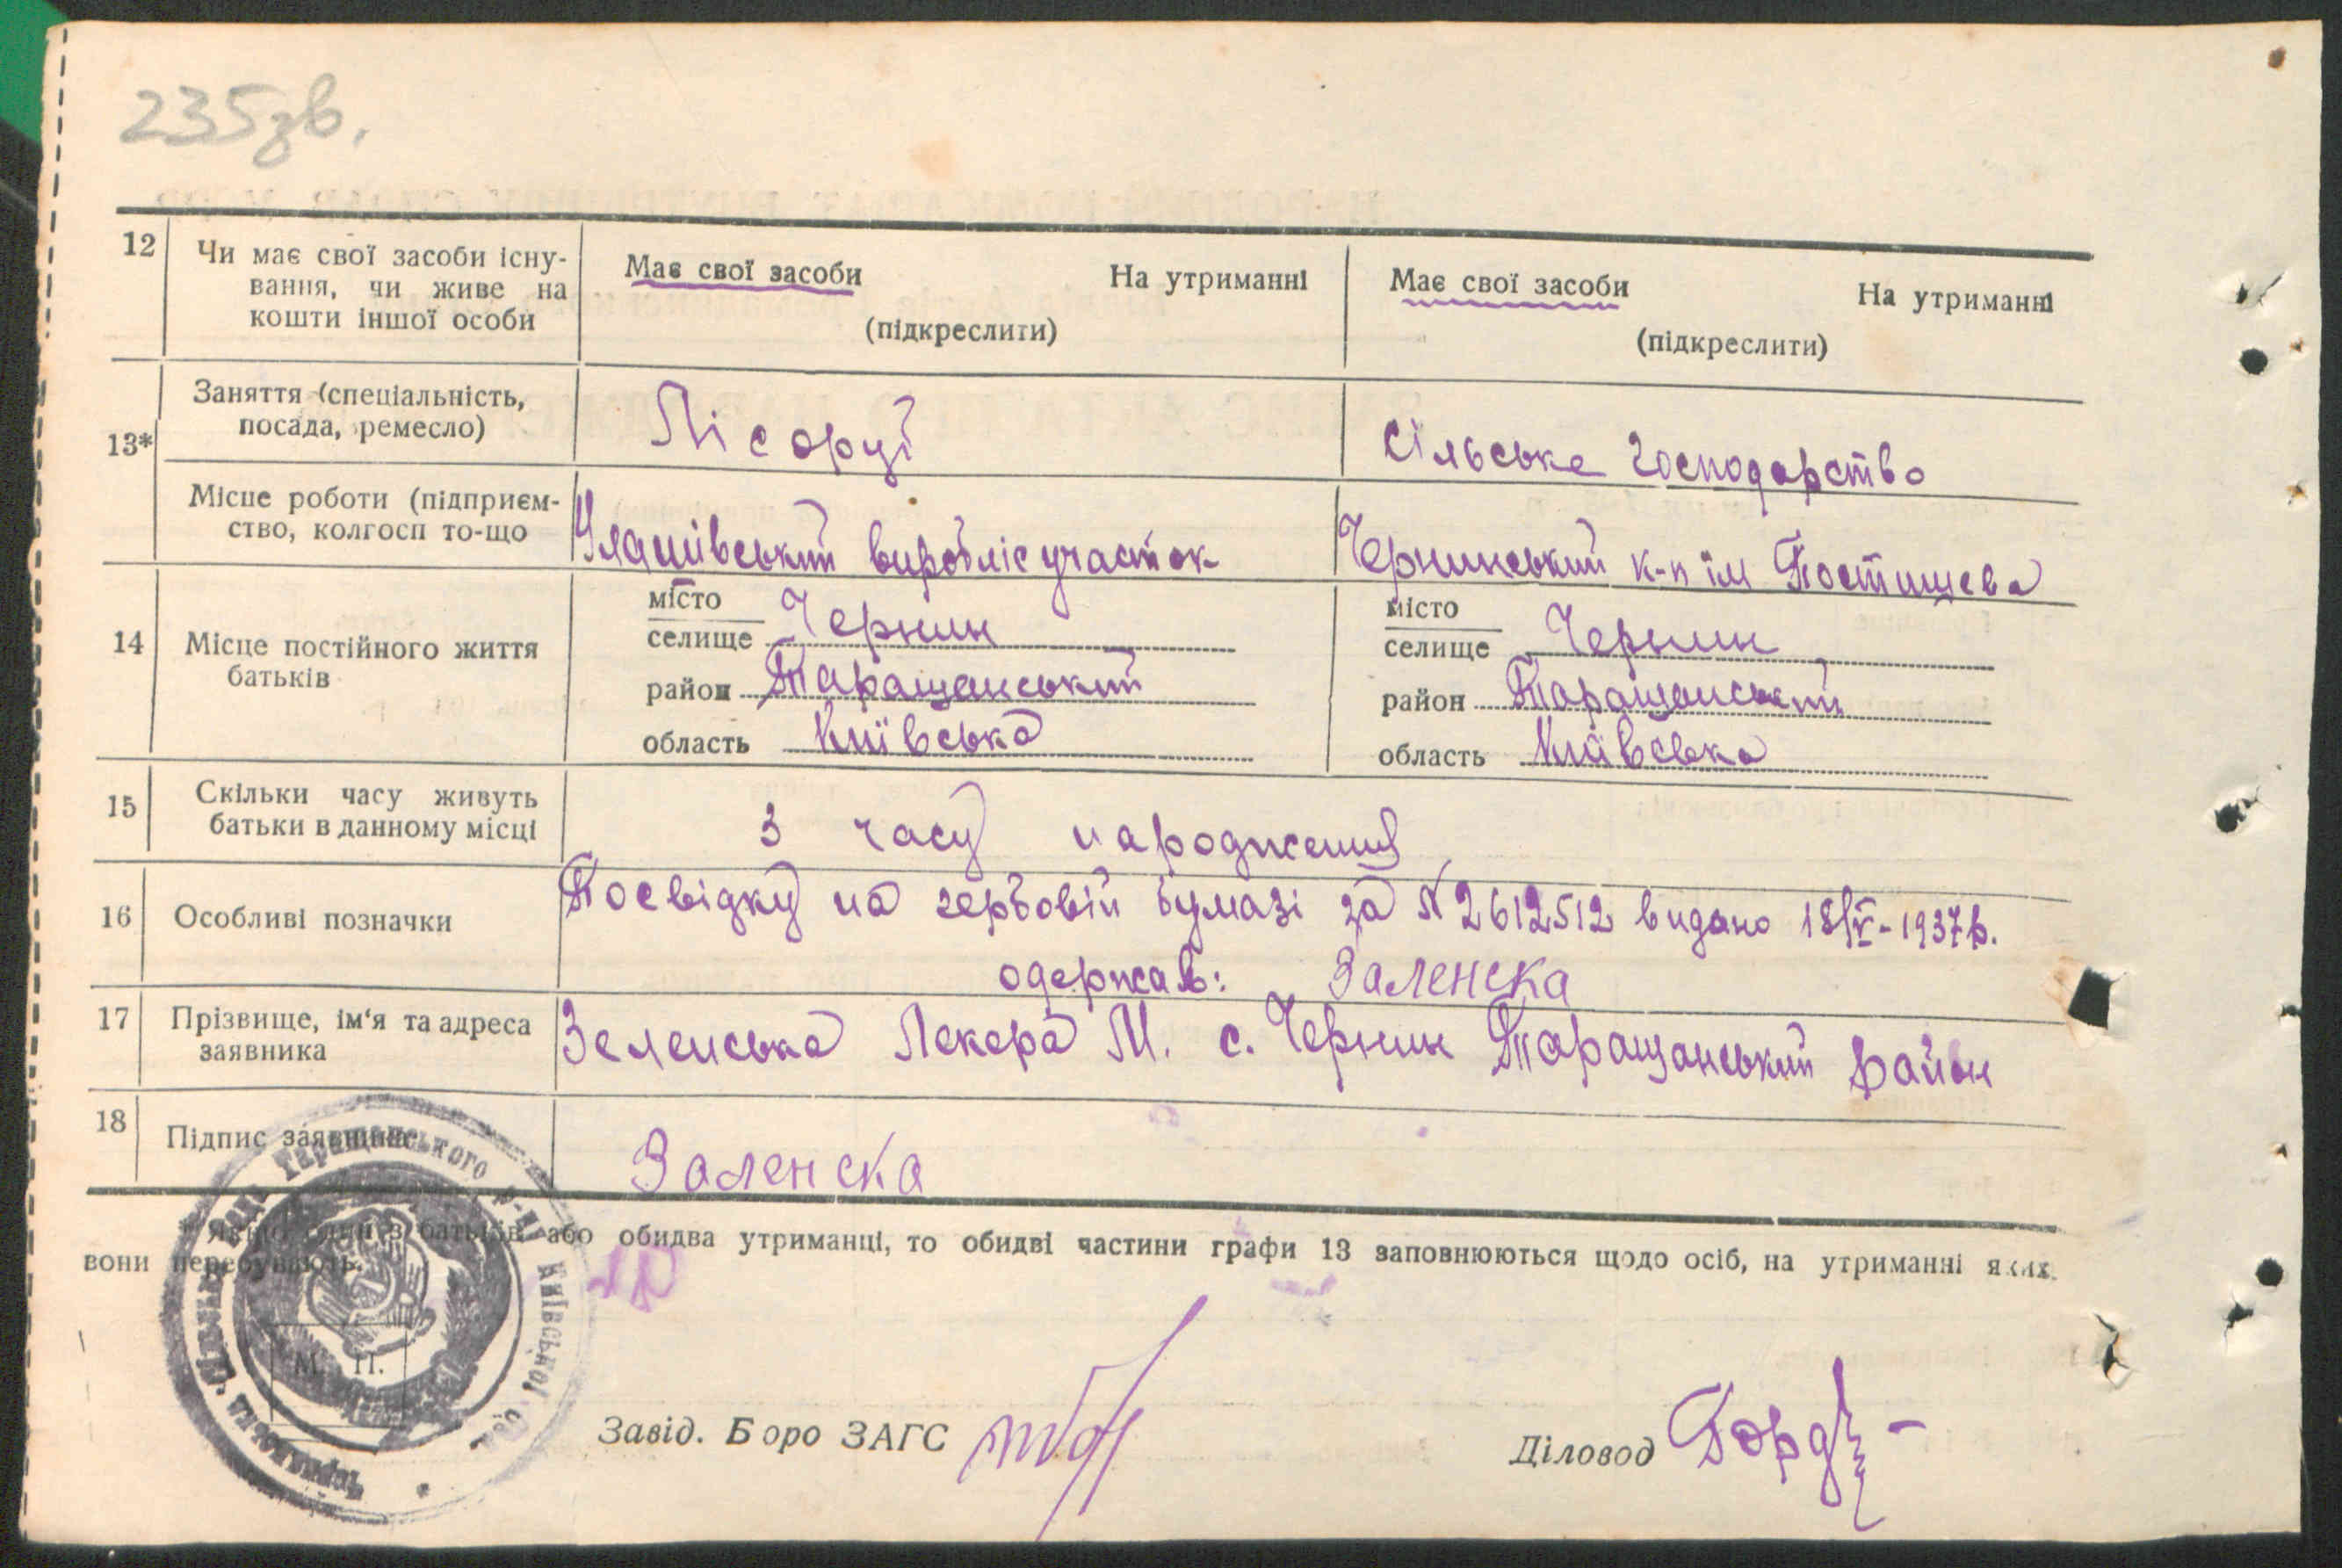 235зв.
12 Чи має свої засоби існу-
вання, чи живе на
кошти іншої особи
Має свої засоби На утриманні
(підкреслити)
Має свої засоби На утриманні
(підкреслити)
13* Заняття (спеціальність,
посада, ремесло)
Лісоруб
Сільське господарство
Місце роботи (підприєм-
ство, колгосп то-що
виробліс участок
Чернинський к-п ім Постишева
14 Місце постійного життя
батьків
місто
селище Чернин
район Таращанський
область Київська
місто
селище Чернин
район Таращанський
область Київська
15 Скільки часу живуть
батьки в данному місці
З часу народження
16 Особливі позначки
Посвідку на гербовій бумазі за № 2612512 видано 18/V-1937р.
одержав: Заленска
17 Прізвище, ім‘я та адреса
заявника
Зеленська Лекера М. с. Чернин Таращанський район
18 Підпис заявника
Заленска
* Якщо один з батьків або обидва утриманці, то обидві частини графи 13 заповнюються щодо осіб, на утриманні яких
вони перебувають.
Таращанського р-н Київської обл.
М. П.
Завід. Боро ЗАГС
Діловод